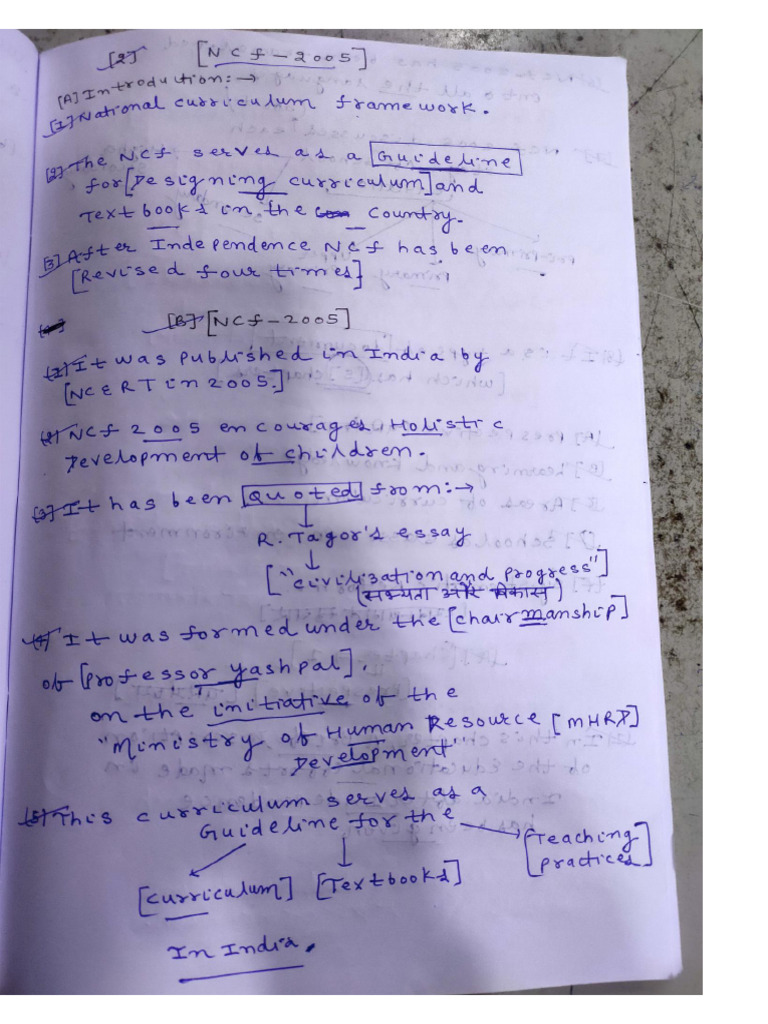 [2] [NCf-2005]
[A] Introduction:→
[1] National curriculum framework.
[2] The NCf serves as a [Guideline]
for [Designing curriculum] and
Textbooks in the country.
[3] After Independence NCf has been
[Revised four times]
[B] [NCf-2005]
[1] It was published in India by
[NCERT in 2005.]
[2] NCf 2005 encourages Holistic
Development of children.
[3] It has been [Quoted] from:→
R. Tagor's essay
["civilization and progress"]
(सभ्यता और विकास)
[4] It was formed under the [chairmanship]
of [professor yashpal].
on the initiative of the
"Ministry of Human Resource [MHRD]
Development"
[5] This curriculum serves as a
Guideline for the
[Teaching
practices]
[curriculum] [Textbooks]
In India.